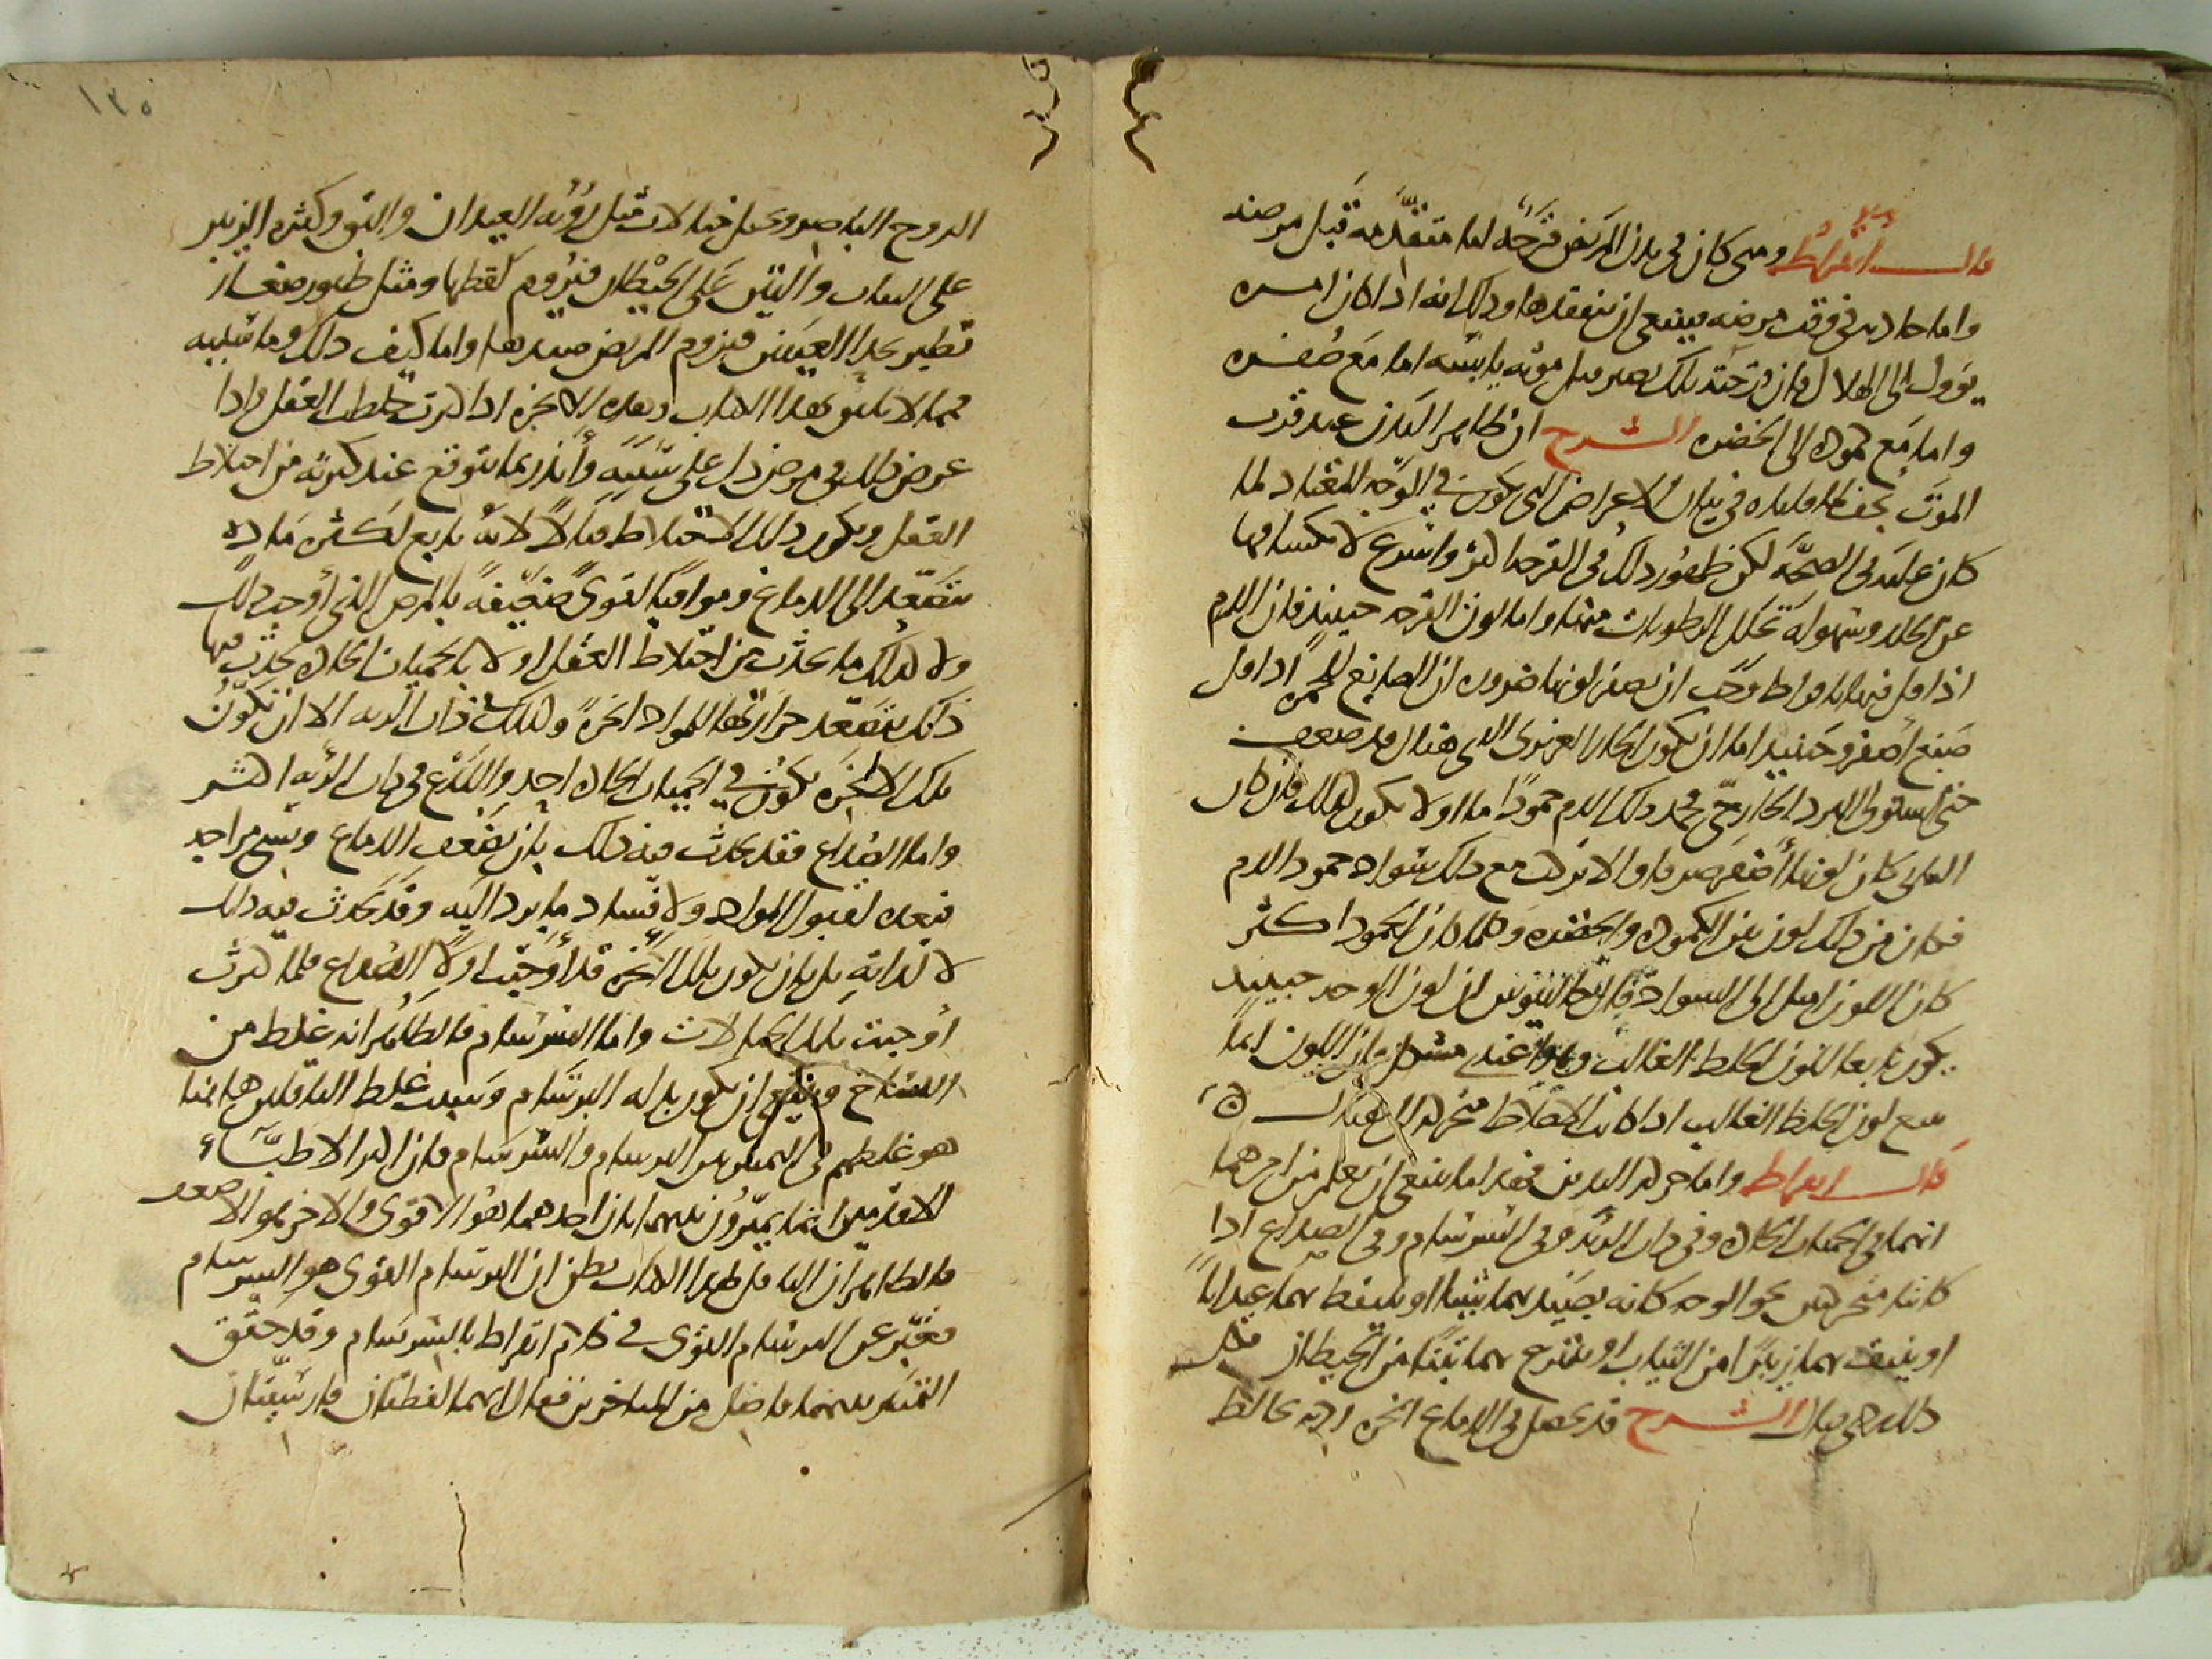 قال أبقراط ومتى كان في بدن المريض قرحة اما متقدمة قبل مرضه
واما حادثة في وقت مرضه فينبغي ان تتفقدها وذلك انه اذا كان امره
يؤول الى الهلاك فان قرحته تلك تصير قبل موته يابسة اما مع صفرة
واما مع كمودة الى الخضرة الشرح ان ظاهر البدن عند قرب
الموت يجف لما قلناه في بيان الاعراض التي تكون في الوجه المضاد لما
كان عليه في الصحة لكن ظهور ذلك في القرحة اكثر واسرع لانكشافها
عن الجلد وسهولة تحلل الرطوبات منها واما لون القرحة حينئذ فان الدم
اذا قل فيها بافراط وجب ان يصفر لونها ضرورة ان الصابغ للحمرة اذا قل
صبغ أصفر وحينئذ اما ان يكون الحار الغريزي الذي هناك قد ضعف
حتى استولى البرد الخارجي فجمد ذلك الدم جمودا ما او لا يكون كذلك فان كان
الثاني كان لونها أصفر صرفا والا تركب مع ذلك سواد جمود الدم
فكان من ذلك لون بين الكمودة والخضرة وكلما كان الجمود اكثر
كان اللون اميل الى السواد قال جالينوس ان لون الوجه حينئذ
يكون تابعا للون الخلط الغالب وهذا عندي مشكل فان اللون انما
يتبع لون الخلط الغالب اذا كانت الاخلاط متحركة الى هناك
قال ابقراط واما حركة اليدين فهذا ما ينبغي ان يعلم من امرهما
انهما في الحميات الحادة وفي ذات الرئة وفي السرسام وفي الصداع اذا
كانتا متحركتين نحو الوجه كانه يصيد بهما شيئا او يلتقط بهما عيدانا
او ينتف بهما زئبرا من الثياب او ينتزع بهما تبنا من الحيطان فكل
ذلك ردي قتال الشرح قد يحصل في الدماغ ابخرة ردية تخالط
١٣٥
الروح الباصر وتخيل خيالات مثل رؤية العيدان والبق وكثرة الزئبر
على الثياب والتبن على الحيطان فيروم لقطها ومثل طيور صغار
تطير بحذا العينين فيروم المريض صيدها واما كيف ذلك وما سببه
فمما لا يليق بهذا الكتاب وهذه الابخرة اذا كثرت تخلط العقل واذا
عرض ذلك في مرض دل على سببه وأنذر بما يتوقع عند كثرته من اختلاط
العقل ويكون ذلك الاختلاط قتالا لانه تابع لكثرة مادة
تتصعد الى الدماغ وموافية لقوى ضعيفة بالمرض الذي أوجب ذلك
ولا كذلك ما يحدث من اختلاط العقل اولا بالحميات الحادة يحدث فيها
ذلك بتصعد حرارتها للمواد ابخرة وكذلك ذات الرئة الا ان تكون
تلك الابخرة تكون في الحميات الحادة احد والذع وفي ذات الرئة اكثر
واما الصداع فقد يحدث فيه ذلك بان يضعف الدماغ ويسي مزاجه
فيعده لقبول المواد ولافساد ما يرد اليه وقد يحدث فيه ذلك
لا لذاته بل بان يكون تلك الابخرة قد أوجبت اولا الصداع فلما كثرت
اوجبت تلك الخيالات واما السرسام فالظاهر انه غلط من
النساخ وينبغي ان يكون بدله البرسام وسبب غلط الناقلين هاهنا
هو غلطهم في التمييز بين البرسام والسرسام فان اكثر الاطباء
الاقدمين انما يميزون بينهما بان احدهما هو الاقوى والاخر هو الاضعف
فالظاهر ان الناقل لهذا الكتاب يظن ان البرسام القوي هو السرسام
فعبر عن البرسام القوي في كلام ابقراط بالسرسام وقد حقق
التمييز بينهما فاضل من المتاخرين فقال انهما لفظتان فارسيتان